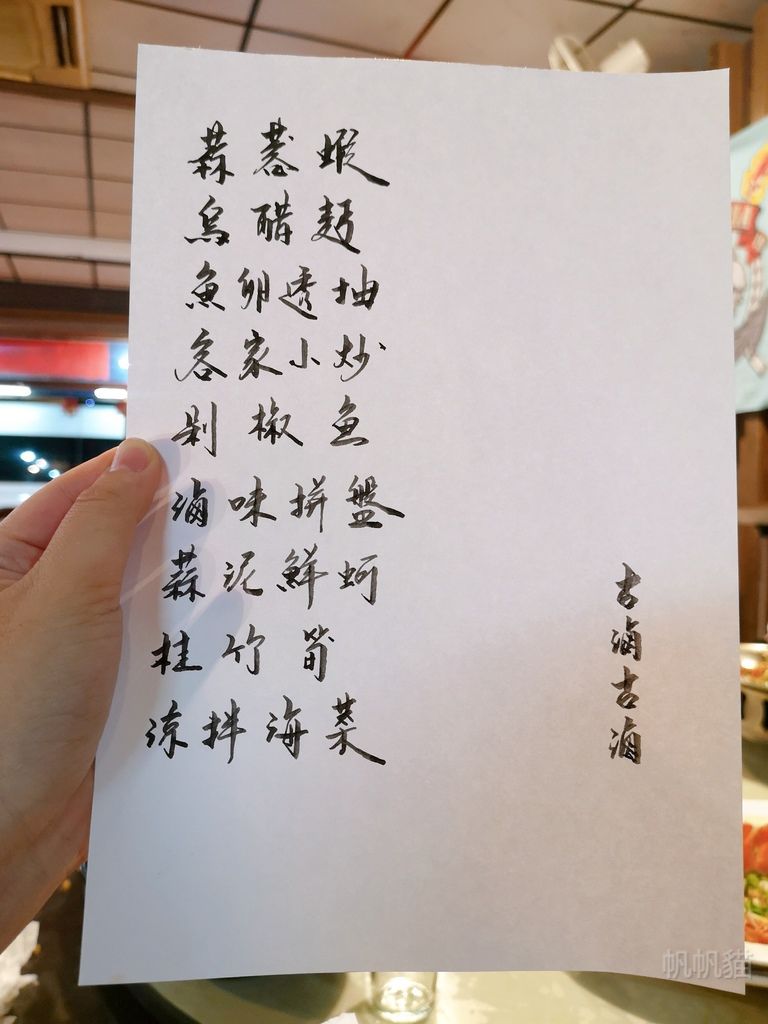 蒜蓉蝦
烏醋麵
魚卵透抽
客家小炒
剁椒魚
滷味拼盤
蒜泥鮮蚵
桂竹筍
涼拌海菜
古滷古滷
帆帆貓